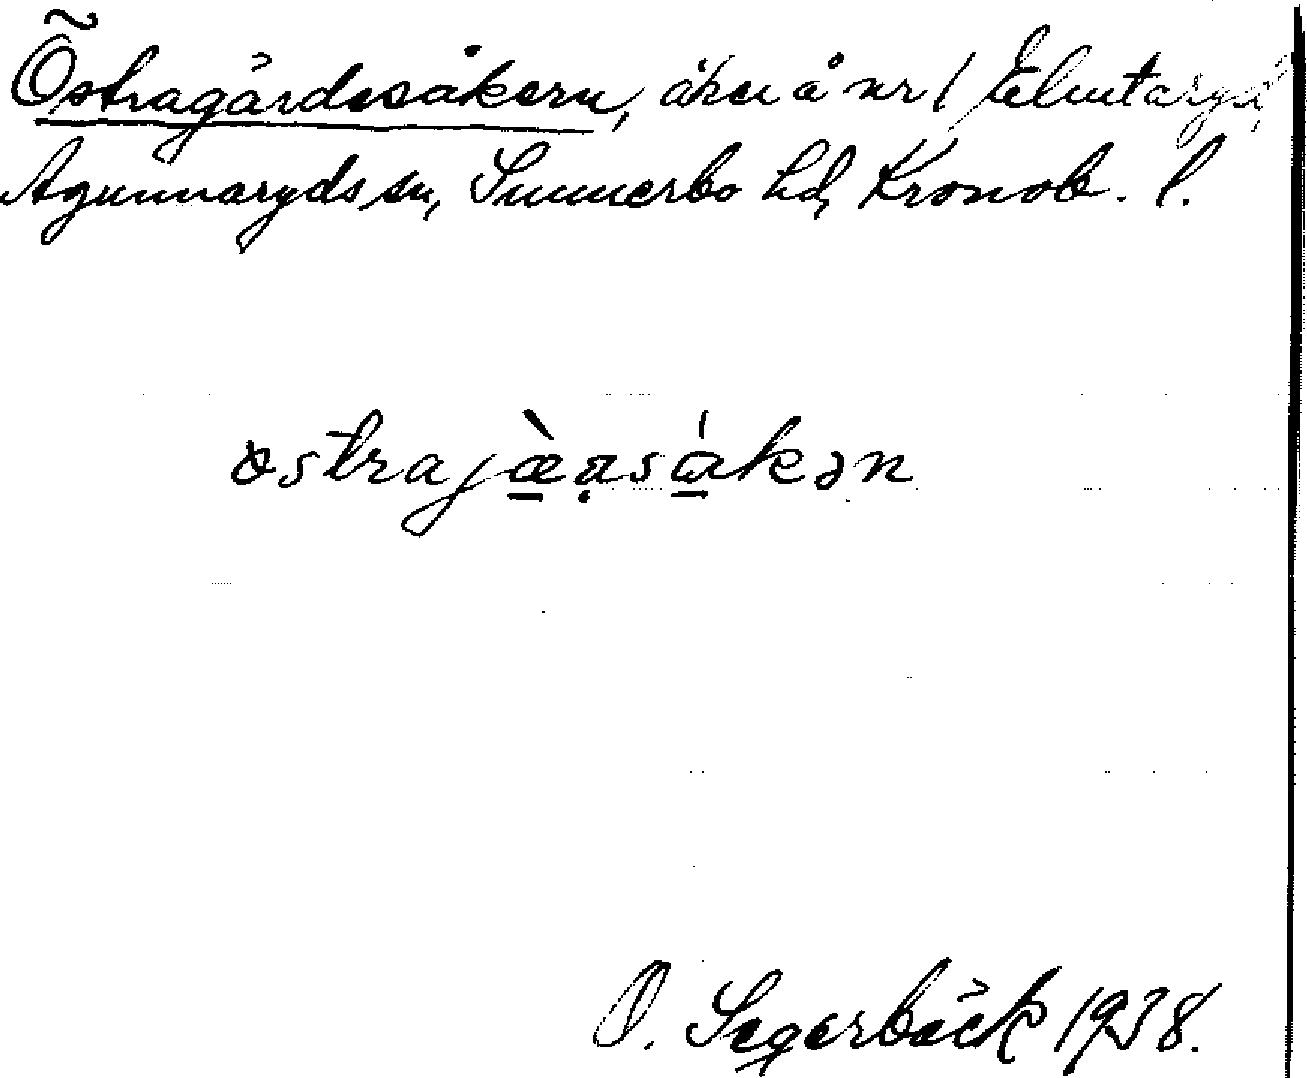 Östragårdsåkern, åker å nr 1 Elmtaryd,
Agunnaryds sn, Sunnerbo hd, Kronob. l.
östrajæ̀ṇsάkən
O. Segerbäck 1938.